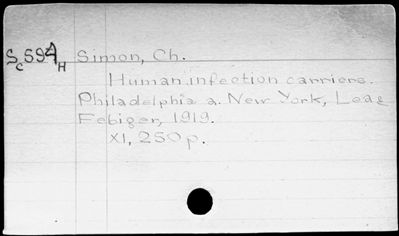 Sc594H Simon, Ch.
Human infection carriers.
Philadelphia a. New York, Lea &
Febiger, 1919.
XI, 250 p.